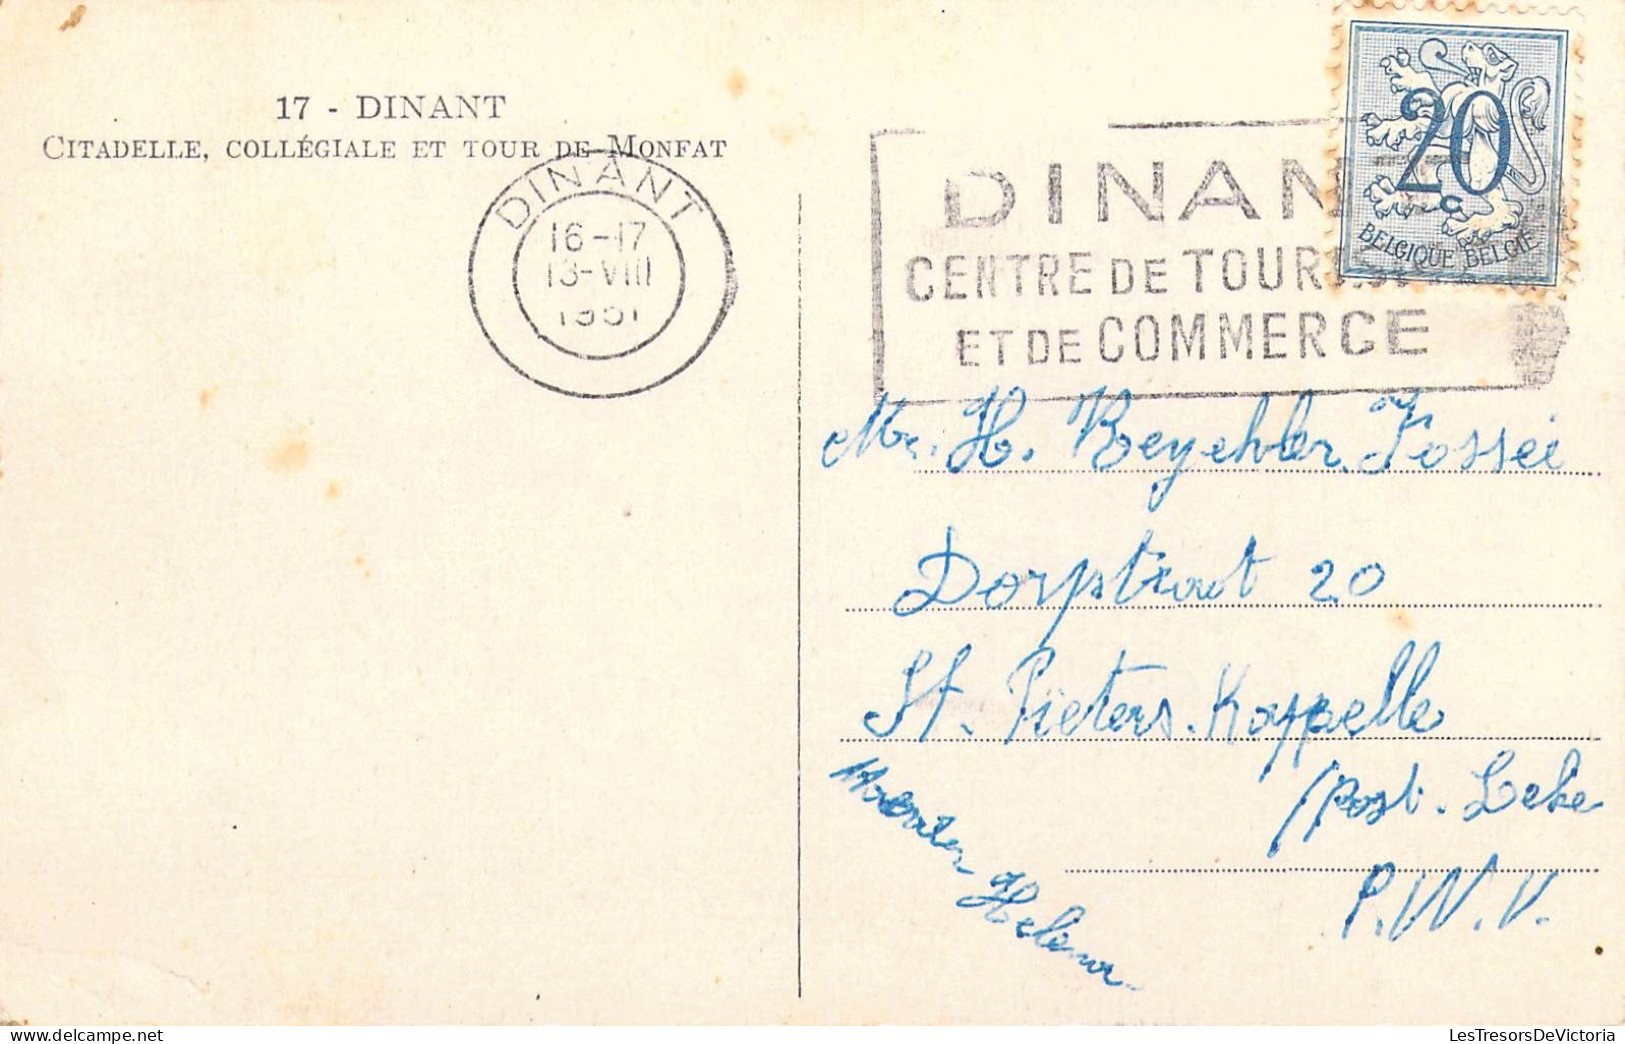 17 - DINANT
CITADELLE, COLLÉGIALE ET TOUR DE MONFAT
DINANT
16-17
13-VIII
1951
DINANT
CENTRE DE TOURISME
ET DE COMMERCE
20
c
BELGIQUE BELGIË
Mr. H. Beyehler
Dorpstraat 20
St. Pieters. Kappelle
(post. Leke
P.W.V.
Helena
LesTresorsDeVictoria.com